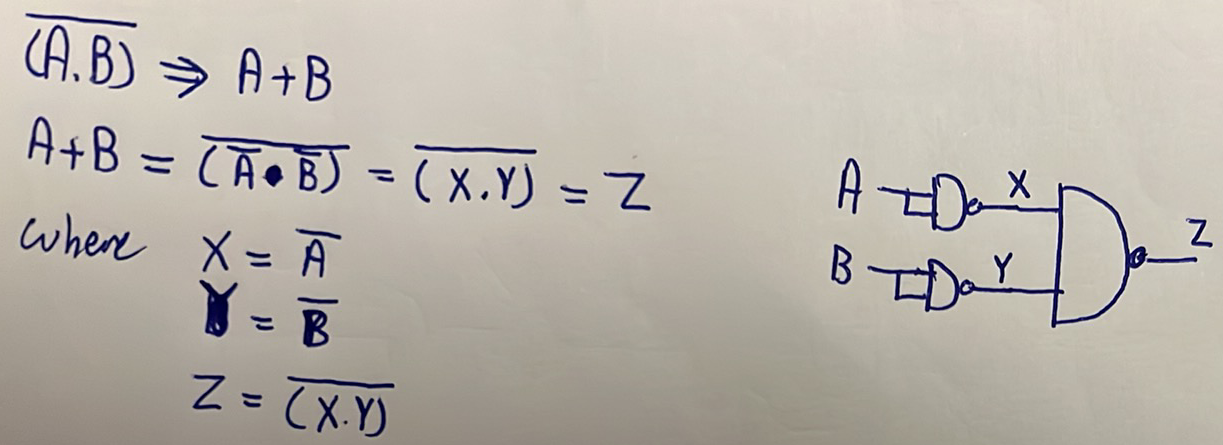 (A̅.̅B̅)̅ ⇒ A+B
A+B = (̅A̅̅ ̅•̅ ̅B̅̅)̅ = (̅X̅.̅Y̅)̅ = Z
where X = A̅
Y = B̅
Z = (̅X̅.̅Y̅)̅
A X
B Y
Z